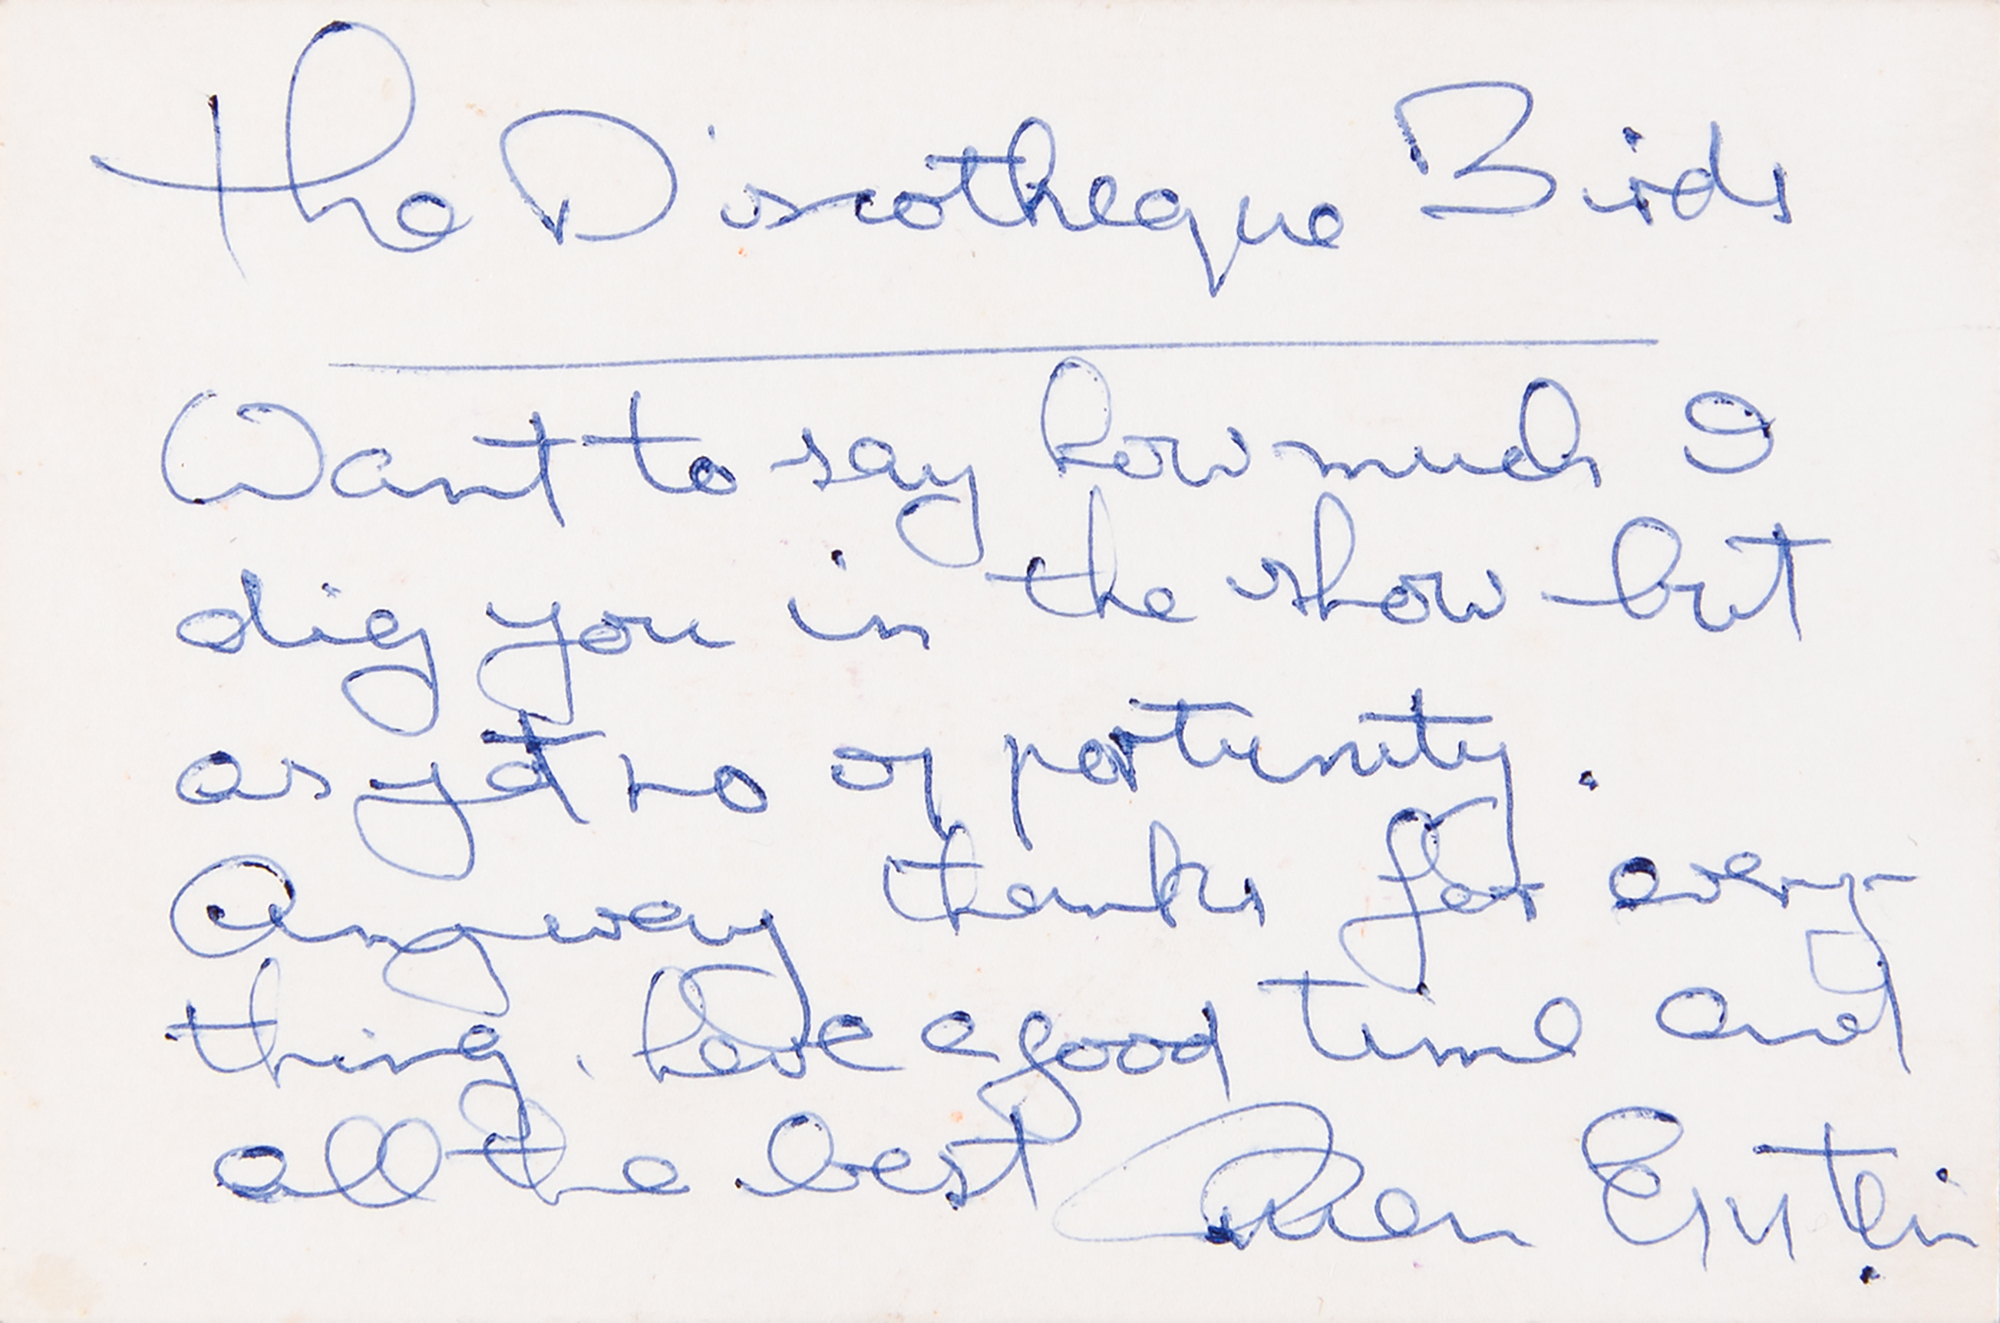 The Discotheque Birds
Want to say how much I
dig you in the show but
as yet no opportunity.
Anyway thanks for every-
thing. have a good time and
all the best Brian Epstein